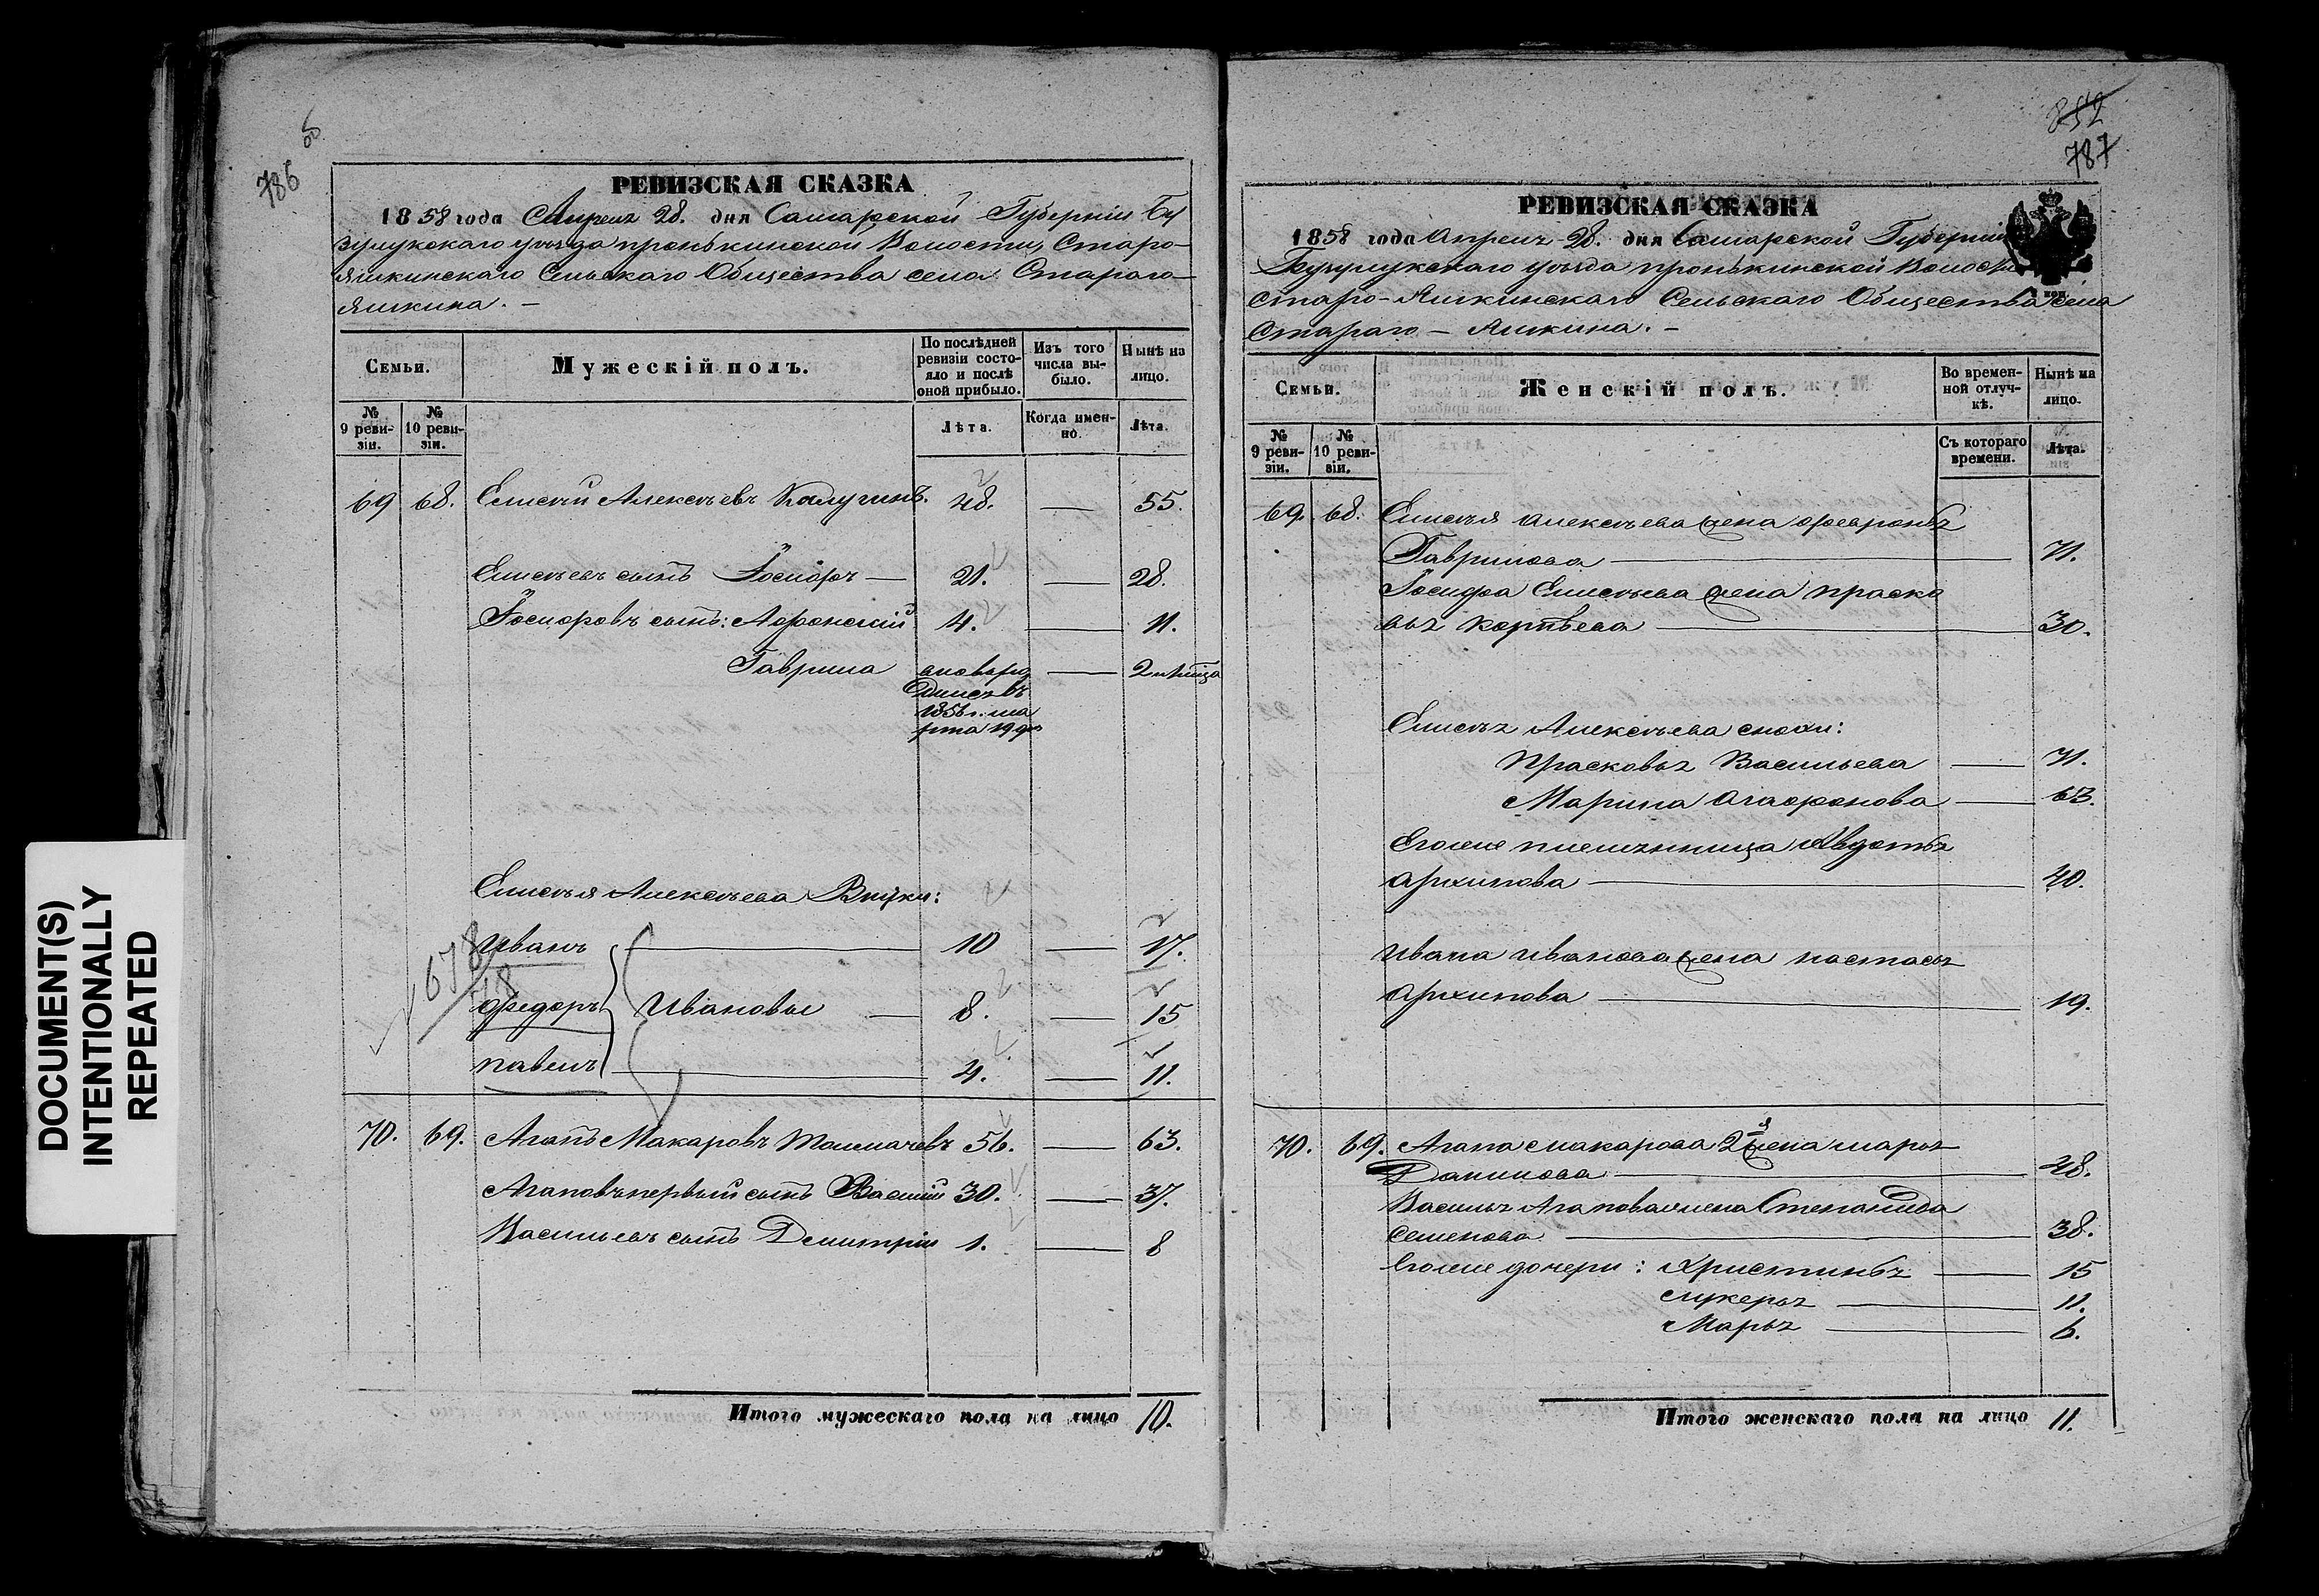 DOCUMENT(S)
INTENTIONALLY
REPEATED
786
об
РЕВИЗСКАЯ СКАЗКА
1858 года Апреля 28. дня Самарской Губерніи Бу
зулукскаго уѣзда пронькинской Волости, Старо-
яшкинскаго Сельскаго Общества села Стараго
яшкина. -
Семьи.
Мужескій полъ.
По послѣдней ревизіи состояло и послѣ оной прибыло.
Изъ того числа выбыло.
Нынѣ на лицо.
№ 9 ревизіи.
№ 10 ревизіи.
Лѣта.
Когда именно.
Лѣта.
69 68. Елисей Алексѣевъ Калугинъ. 48. — 55.
Елисѣевъ сынъ Іосифъ — 21. — 28.
Іосифовъ сынъ: Афонасій 4. — 11.
Гаврила вновьрож — 2 мѣсяца
1858 г. ма
рта 19 дня
Елисѣя Алексѣева Внуки:
Иванъ — 10 — 17.
678
федоръ Ивановы — 8. — 15
павелъ — 4. — 11.
70. 69. Агапъ Макаровъ Толмачевъ 56. — 63.
Агаповъ первый сынъ Василій 30. — 37.
Васильевъ сынъ Дмитрій 1. — 8
Итого мужескаго пола на лицо 10.
852
787
РЕВИЗСКАЯ СКАЗКА
1858 года Апреля 28. дня Самарской Губерніи
Бузулукскаго уѣзда пронькинской Волости
Старо-Яшкинскаго Сельскаго Общества села
Стараго - Яшкина. -
Семьи.
Женскій полъ.
Во временной отлучкѣ.
Нынѣ на лицо.
№ 9 ревизіи.
№ 10 ревизіи.
Съ котораго времени.
Лѣта.
69. 68. Елисѣя Алексѣева жена февронья
Гаврилова — 71.
Іосифа Елисѣева жена праско
вья Корнѣева — 30.
Елисѣя Алексѣева снохи:
Прасковья Васильева — 71.
Марина Агафонова — 63.
Егоже племянница Авдотья
архипова — 40.
Ивана Иванова жена настасья
архипова — 19.
70. 69. Агапа Макарова 2я жена марья
Данилова — 48.
Василья Агапова жена Степанида
Семенова — 38.
Егоже дочери: Христинья — 15
Лукерья — 11.
Марья — 6.
Итого женскаго пола на лицо 11.